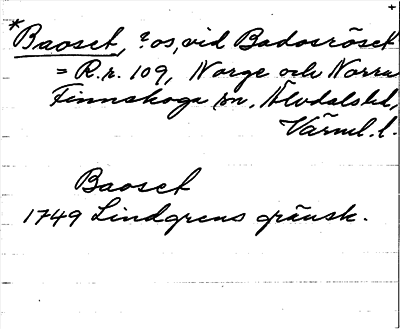 *Baoset, ?os, vid Badosröset
= R.r. 109, Norge och Norra
Finnskoga sn. Älvdals hd,
Värml. l.
Baoset
1749 Lindgrens gränsk.